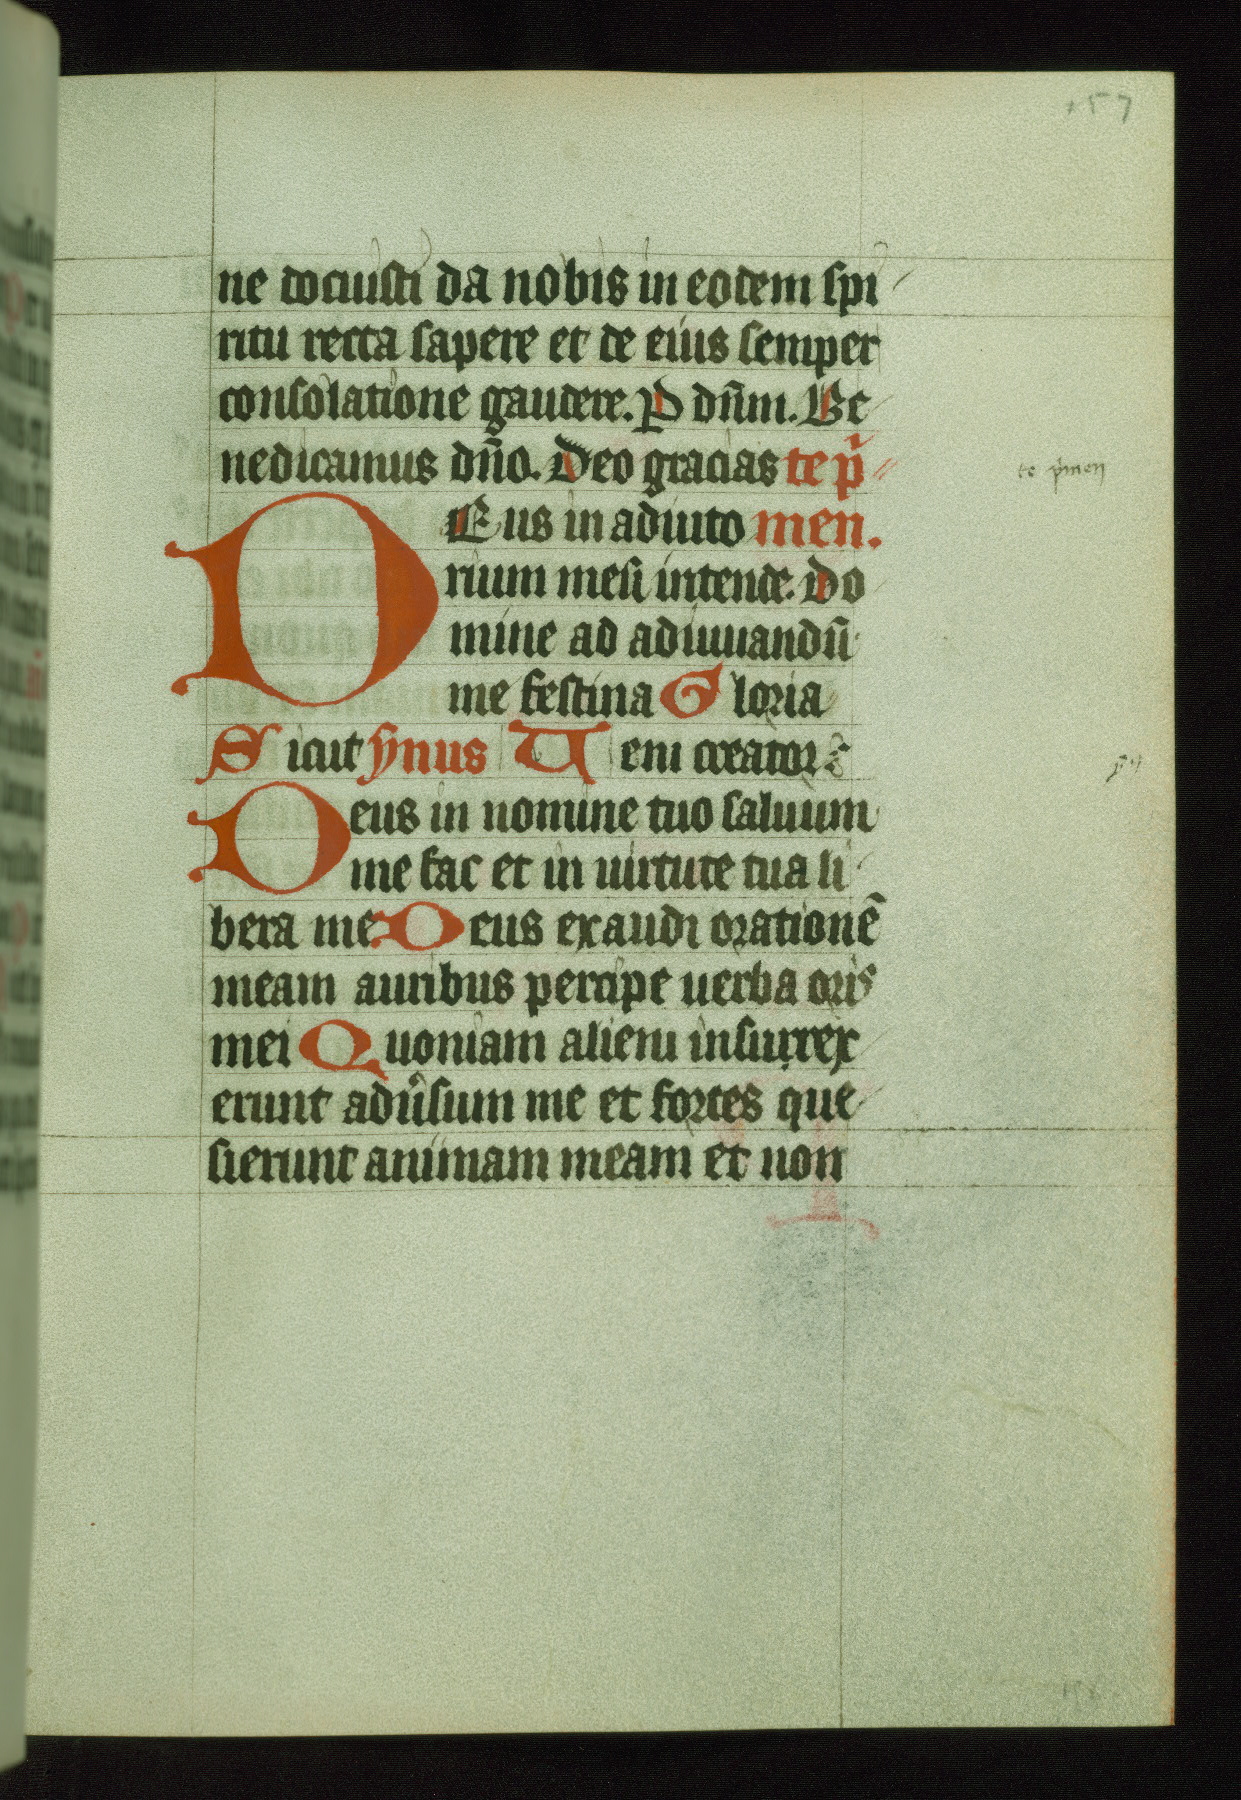 157
ne docuisti da nobis in eodem spi
ritu recta sapere et de eius semper
consolatione gaudere. P dn̄m. Be
nedicamus dn̄o. Deo gracias te p̄
DEus in adiuto men.
rium meū intende. Do
mine ad adiuuandū
me festina Gloria
Sicut ẏnus Ueni creator
Deus in nomine tuo saluum
me fac et in uirtute tua li
bera me Deus exaudi orationē
meam auribus percipe uerba oris
mei Quoniam alieni insurrex
erunt adūsum me et fortes que
sierunt animam meam et non
te p̄men